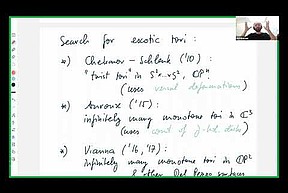 Search for exotic tori:
*) Chekanov - Schlenk ('10):
"twist tori" in S²x...xS², CPⁿ
(uses versal deformations)
*) Auroux ('15):
infinitely many monotone tori in C³
(uses count of J-hol. disks)
*) Vianna ('16, '17):
infinitely many monotone tori in CP²
& other Del Pezzo surfaces